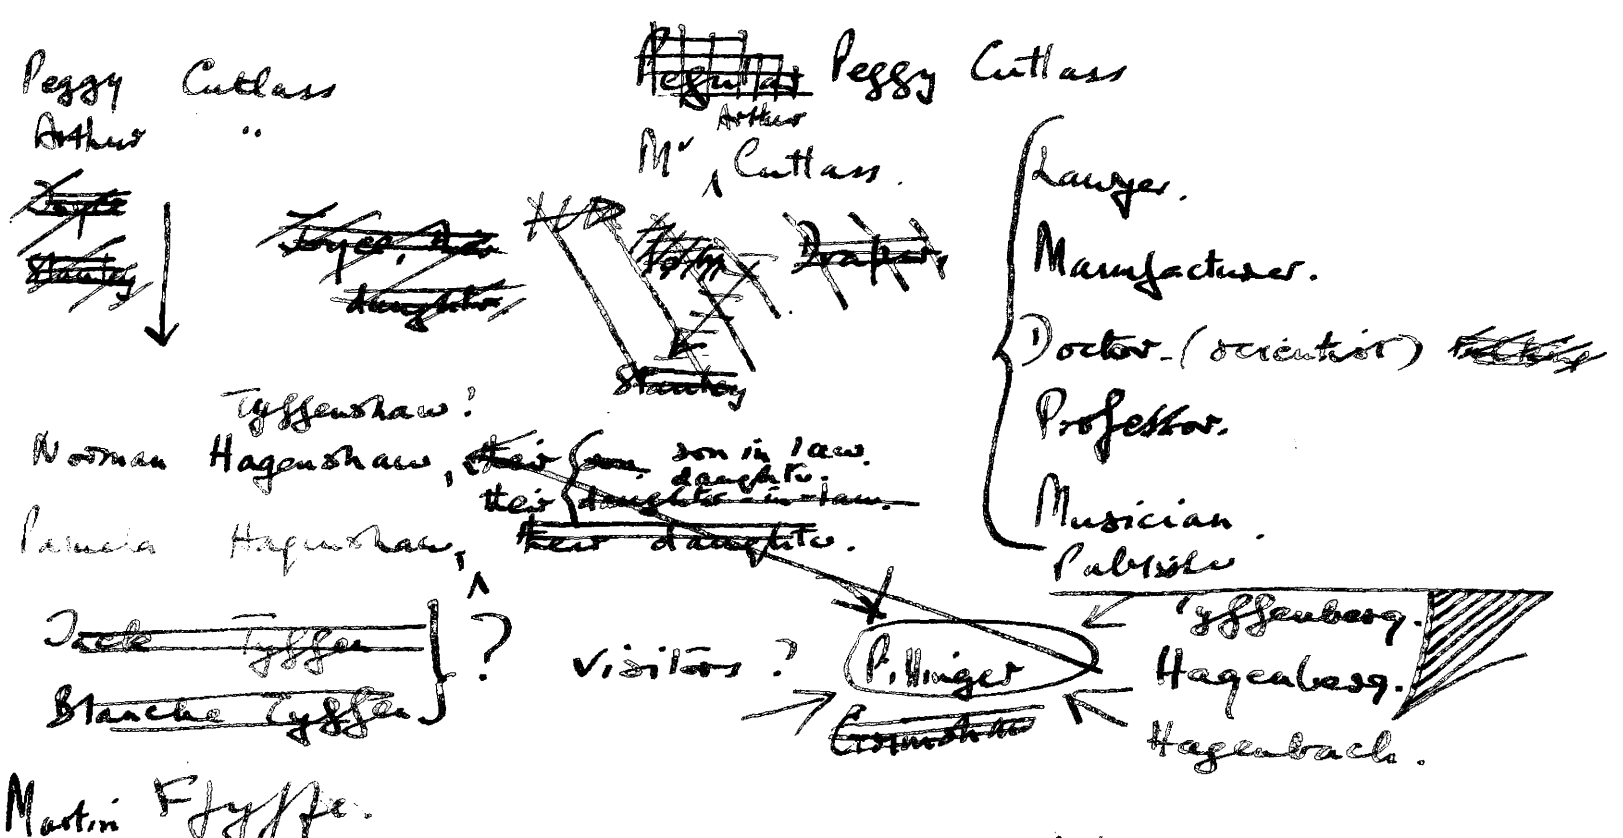 Peggy Cutlass
Arthur "
Joyce
Stanley
Joyce, their
daughter
Peggy Cutlass
Arthur
Mr ∧ Cutlass.
Draper,
Stanley
Lawyer.
Manufacturer.
Doctor - (scientist)
Professor.
Musician.
Publisher
Tyffenshaw!
Norman Hagenshaw, their son. son in law.
daughter.
their daughter-in-law.
Pamela Hagenshaw, their daughter.
∧
Jack Tyffen
Blanche Tyffen
?
Visitors ?
Pillinger
Tyffenberg.
Hagenberg.
Hagenbach.
Martin Ffyffe.